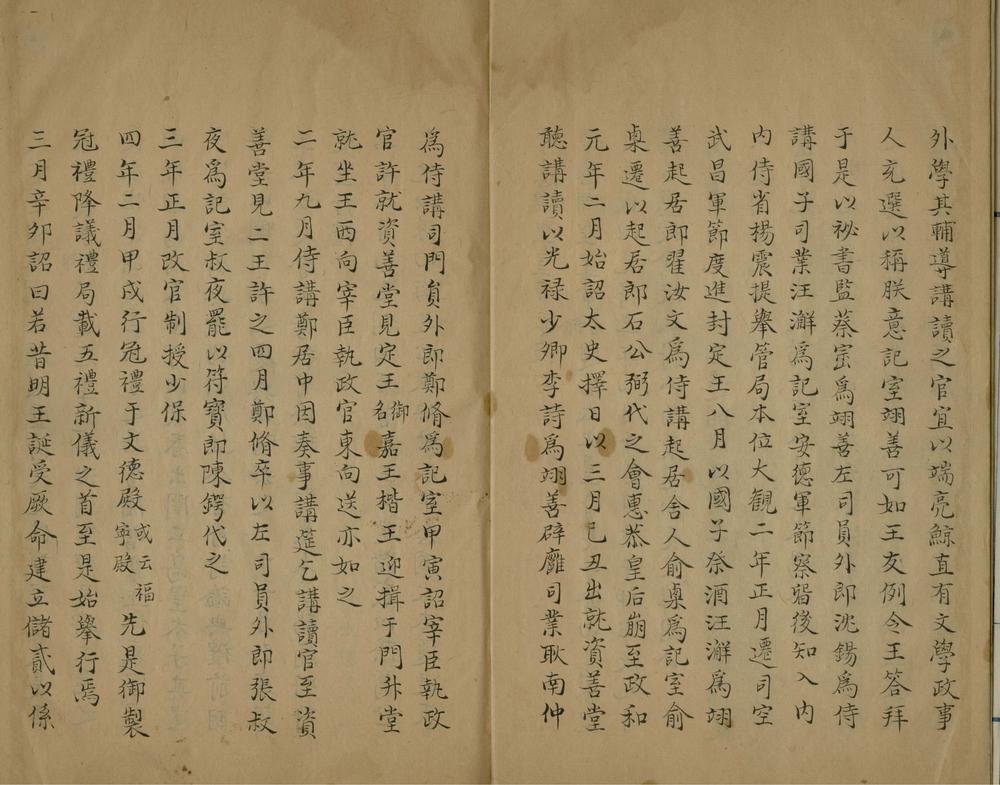 外學其輔導講讀之官宜以端亮鯁直有文學政事
人充選以稱朕意記室翊善可如王友例令王答拜
于是以祕書監蔡崈為翊善左司員外郎沈錫為侍
講國子司業汪澥為記室安德軍節察留後知入內
內侍省楊震提舉管局本位大觀二年正月遷司空
武昌軍節度進封定王八月以國子祭酒汪澥為翊
善起居郎翟汝文為侍講起居舍人俞㮚為記室俞
㮚遷以起居郎石公弼代之會惠恭皇后崩至政和
元年二月始詔太史擇日以三月己丑出就資善堂
聽講讀以光禄少卿李詩為翊善辟廱司業耿南仲
為侍講司門員外郎鄭脩為記室甲寅詔宰臣執政
官許就資善堂見定王御名嘉王楷王迎揖于門升堂
就坐王西向宰臣執政官東向送亦如之
二年九月侍講鄭居中因奏事講筵乞講讀官至資
善堂見二王許之四月鄭脩卒以左司員外郎張叔
夜為記室叔夜罷以符寶郎陳鍔代之
三年正月改官制授少保
四年二月甲戌行冠禮于文德殿或云福寧殿先是御製
冠禮降議禮局載五禮新儀之首至是始舉行焉
三月辛卯詔曰若昔明王誕受厥命建立儲貳以係